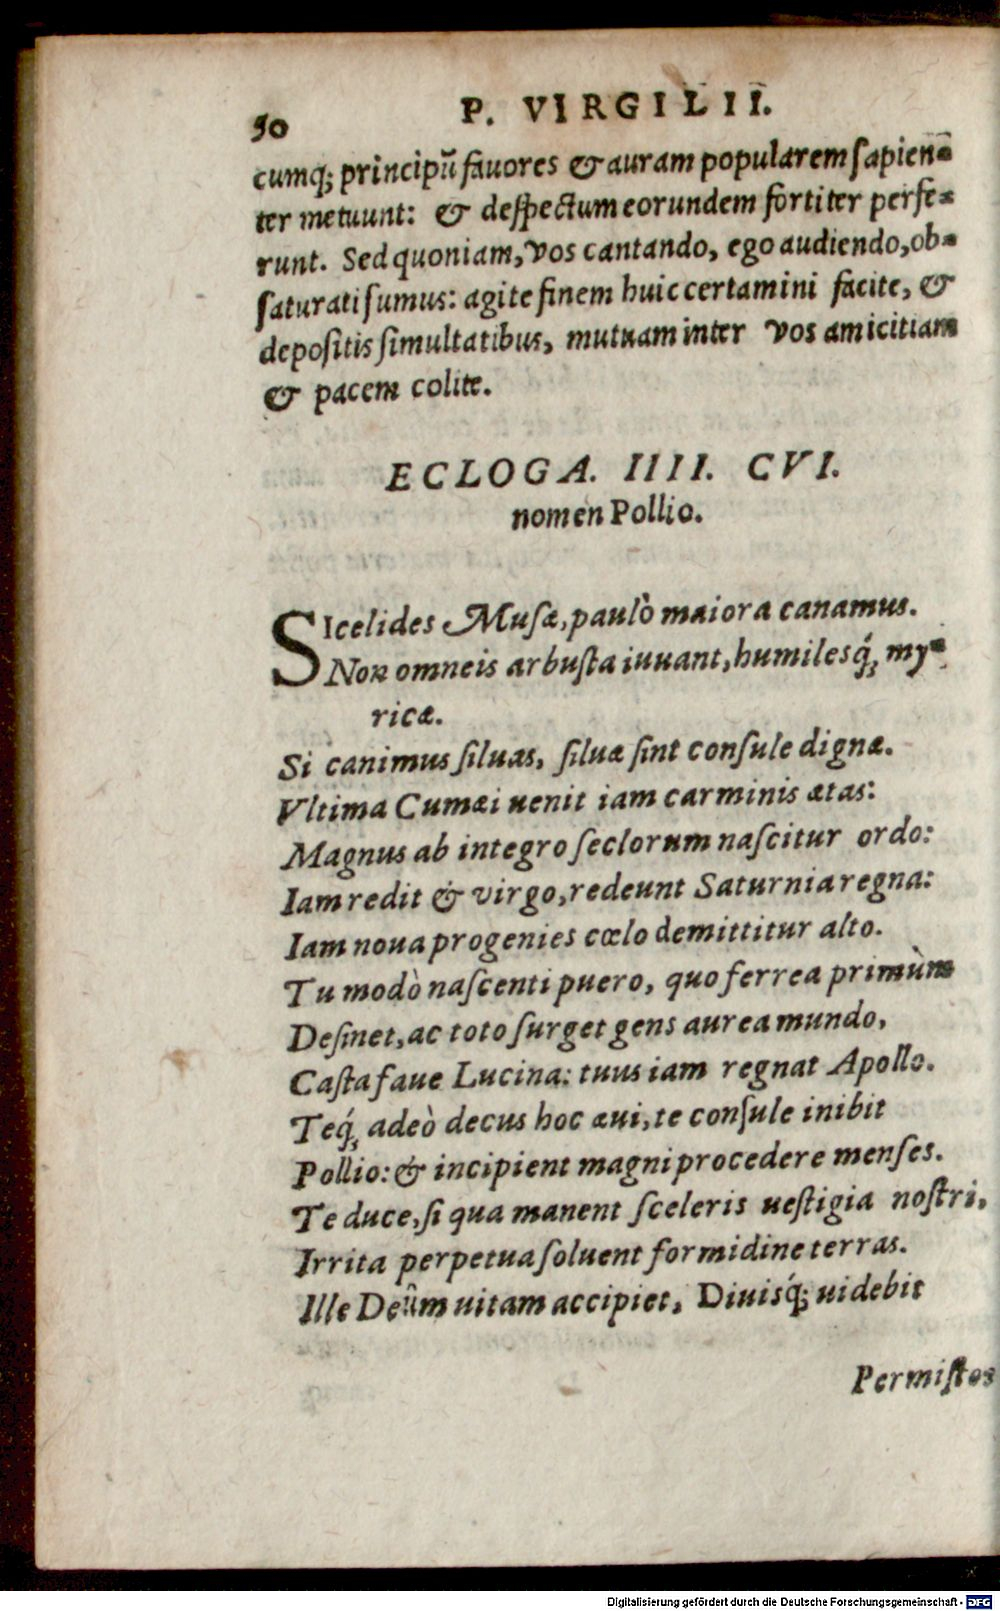 50 P. VIRGILII.
cumq; principũ fauores & auram popularem ſapien-
ter metuunt: & deſpectum eorundem fortiter perfe-
runt. Sed quoniam, vos cantando, ego audiendo, ob-
ſaturati ſumus: agite finem huic certamini facite, &
depoſitis ſimultatibus, mutuam inter vos amicitiam
& pacem colite.
ECLOGA. IIII. CVI.
nomen Pollio.
SIcelides Muſæ, paulò maiora canamus.
Non omneis arbuſta iuuant, humilesq́; my-
ricæ.
Si canimus ſiluas, ſiluæ ſint conſule dignæ.
Vltima Cumæi uenit iam carminis ætas:
Magnus ab integro ſeclorum naſcitur ordo:
Iam redit & virgo, redeunt Saturnia regna:
Iam noua progenies cœlo demittitur alto.
Tu modò naſcenti puero, quo ferrea primùm
Deſinet, ac toto ſurget gens aurea mundo,
Caſta faue Lucina: tuus iam regnat Apollo.
Teq́; adeò decus hoc æui, te conſule inibit
Pollio: & incipient magni procedere menſes.
Te duce, ſi qua manent ſceleris ueſtigia noſtri,
Irrita perpetua ſoluent formidine terras.
Ille Deûm uitam accipiet, Diuisq́; uidebit
Permiſtos
Digitalisierung gefördert durch die Deutsche Forschungsgemeinschaft - DFG